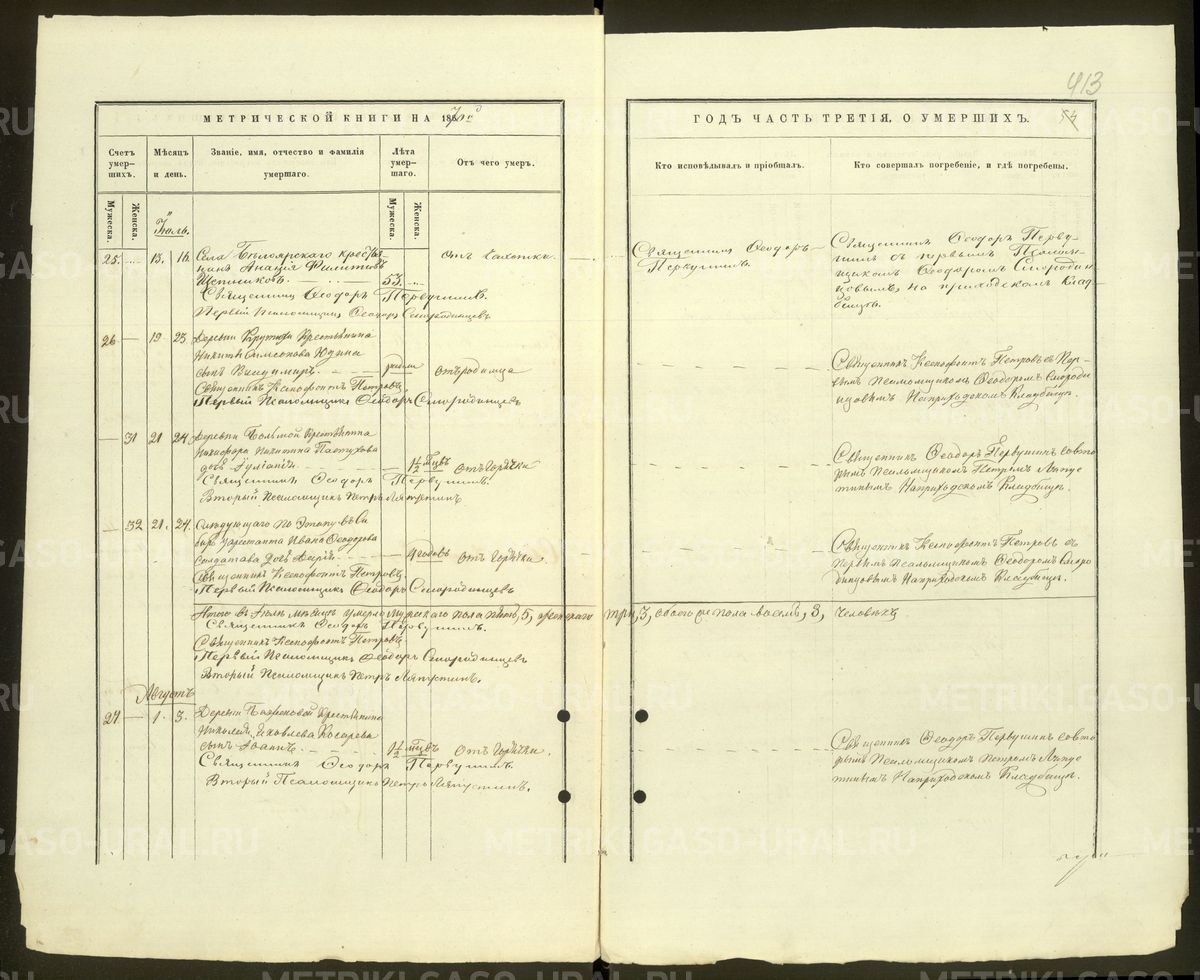 413
МЕТРИЧЕСКОЙ КНИГИ НА 187
ГОДЪ ЧАСТЬ ТРЕТІЯ, О УМЕРШИХЪ.
54
Счетъ умер-
шихъ.
Мѣсяцъ
и день.
Званіе, имя, отчество и фамилія
умершаго.
Лѣта
умер-
шаго.
Отъ чего умеръ.
Кто исповѣдывалъ и пріобщалъ.
Кто совершалъ погребеніе, и гдѣ погребены.
Мужеска.
Женска.
Мужеска.
Женска.
Іюль.
25. 13. 16. Села Бѣлоярскаго крестья-
нинъ
53.
Отъ чахотки.
Священникъ Ѳеодоръ Первушинъ.
Первый Псаломщикъ Ѳеодоръ Смородинцевъ
Священникъ Ѳеодоръ
Первушинъ.
Священникъ Ѳеодоръ Перву-
шинъ съ первымъ Псаломщ-
икомъ Ѳеодоромъ Смородин-
цовымъ, на приходскомъ Клад-
бищѣ.
26 — 19 23 Деревни Крутихи Крестьянина
Никиты Юдина
сынъ Владимиръ.
Отъ родимца
Священникъ Ксенофонтъ Петровъ
Первый Псаломщикъ Ѳеодоръ Смородинцевъ
Священникъ Ксенофонтъ Петровъ съ Пер-
вымъ Псаломщикомъ Ѳеодоромъ Смороди-
нцовымъ На приходскомъ Кладбищѣ.
— 31 21 24. Деревни Крестьянина
Никифора Никитина Пастухова
дочь Іуліанія.
1½ мцъ
Отъ горячки
Священникъ Ѳеодоръ Первушинъ.
Второй Псаломщикъ Петръ Ляпустинъ.
Священникъ Ѳеодоръ Первушинъ со вто-
рымъ Псаломщикомъ Петромъ Ляпус-
тинымъ На приходскомъ Кладбищѣ.
— 32 21. 24. Слѣдующаго по Этапу въ Си-
бирь Арестанта Ивана Ѳеодорова
Солдатова дочь
4 годовъ
Отъ горячки
Священникъ Ксенофонтъ Петровъ
Первый Псаломщикъ Ѳеодоръ Смородинцевъ
Священникъ Ксенофонтъ Петровъ съ
Первымъ Псаломщикомъ Ѳеодоромъ Смо-
родинцовымъ На приходскомъ Кладбищѣ.
Итого въ Іюлѣ мѣсяцѣ умерло мужескаго пола пять, 5, женскаго три, 3, обоего пола восемь, 8, человѣкъ
Священникъ Ѳеодоръ Первушинъ.
Священникъ Ксенофонтъ Петровъ
Первый Псаломщикъ Ѳеодоръ Смородинцевъ
Второй Псаломщикъ Петръ Ляпустинъ.
Августъ
27 — 1. 3. Деревни Баженовой Крестьянина
Николая Яковлева Косарева
сынъ Іоаннъ.
1½ мцъ
Отъ горячки.
Священникъ Ѳеодоръ Первушинъ.
Второй Псаломщикъ Петръ Ляпустинъ.
Священникъ Ѳеодоръ Первушинъ со вто-
рымъ Псаломщикомъ Петромъ Ляпус-
тинымъ На приходскомъ Кладбищѣ.
METRIKI.GASO-URAL.RU